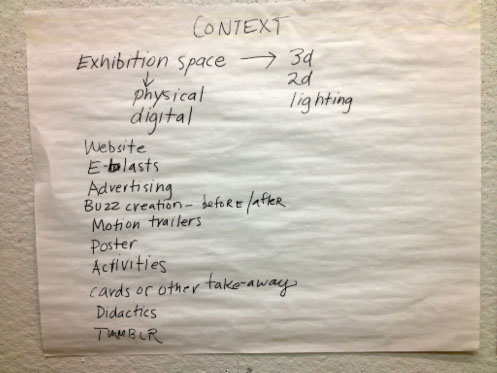 CONTEXT
Exhibition space → 3d
2d
physical lighting
digital
Website
E-blasts
Advertising
Buzz creation - before/after
Motion trailers
Poster
Activities
cards or other take-away
Didactics
TUMBLR